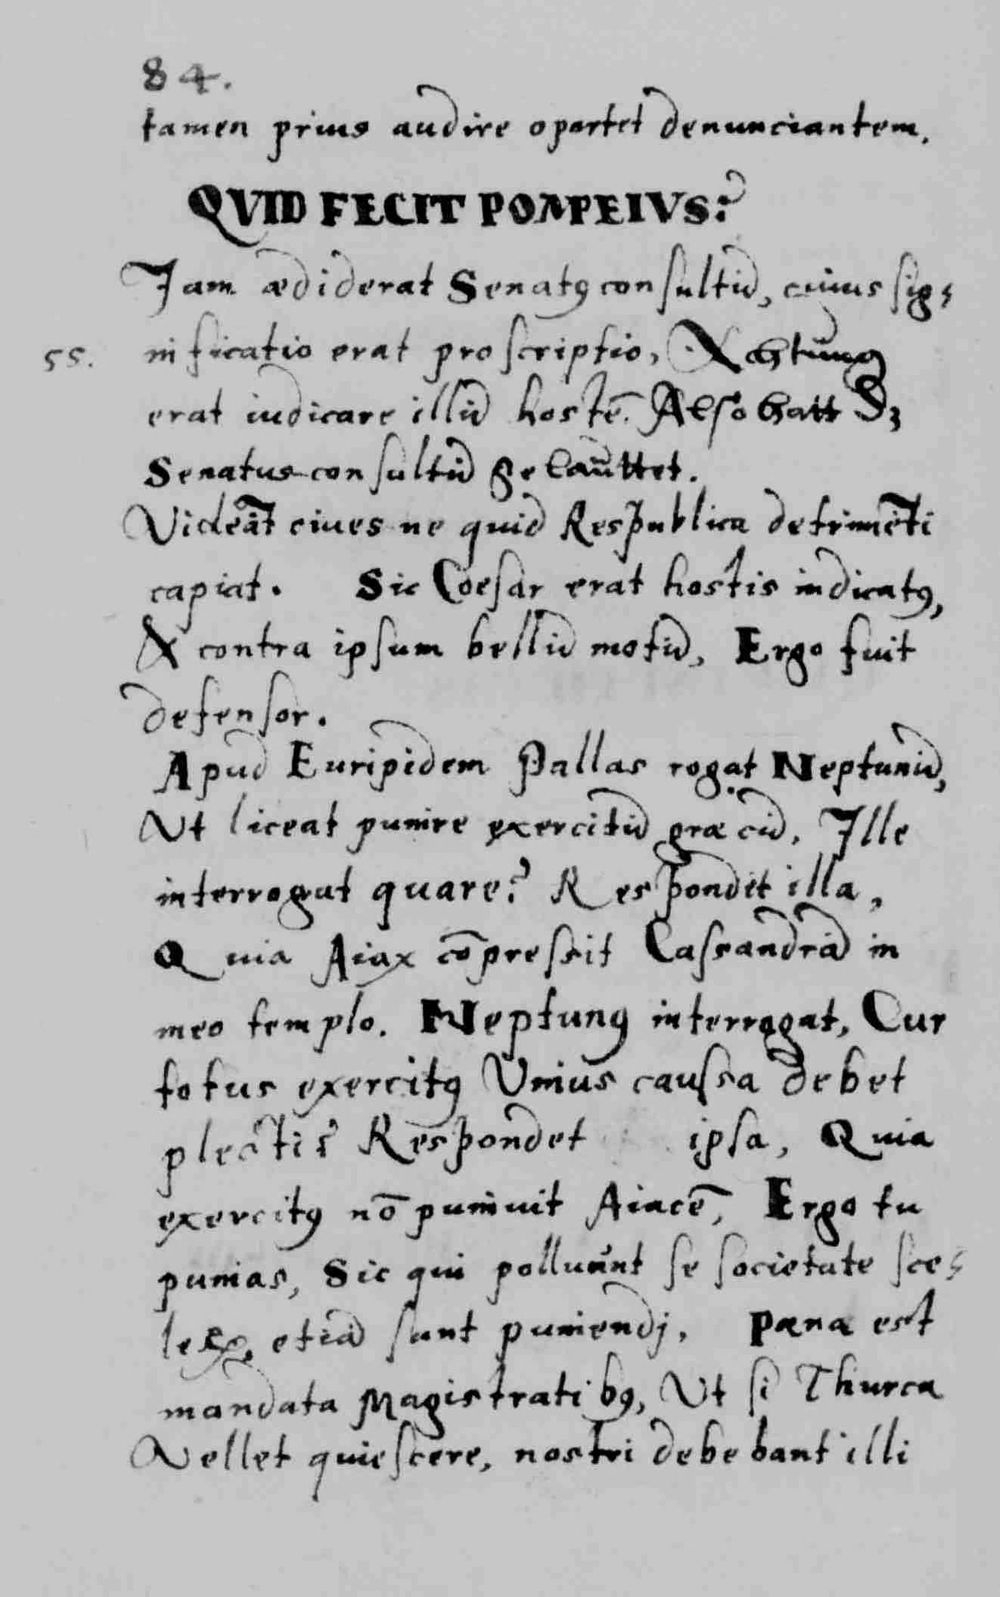 84.
tamen prius audire oportet denunciantem.
QVID FECIT POMPEIVS?
Jam ædiderat Senatꝰ consultū, cuius sig⸗
55. nificatio erat proscriptio, Achtung
erat iudicare illū hostē. Also hatt Dz
Senatus consultū gelauttet.
Videāt ciues ne quid Respublica detrimēti
capiat. Sic Coesar erat hostis indicatꝰ,
& contra ipsum bellū motū, Ergo fuit
defensor.
Apud Euripidem Pallas rogat Neptunū,
Vt liceat punire exercitū græcū. Ille
interrogat quare? Respondet illa,
Quia Aiax cōpressit Cassandrā in
meo templo. Neptunꝰ interrogat, Cur
totus exercitꝰ Vnius caussa debet
plecti? Respondet ipsa, Quia
exercitꝰ nō puniuit Aiacē, Ergo tu
punias, Sic qui polluunt se societate sce⸗
leꝝ, etiā sunt puniendj. Pœna est
mandata Magistratibꝰ, Vt si Thurca
Vellet quiescere, nostri debebant illi